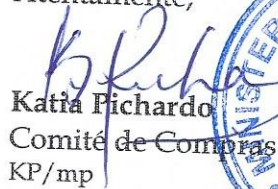 Atentamente,
Katia Pichardo
Comité de Compras
KP/mp
MINISTER